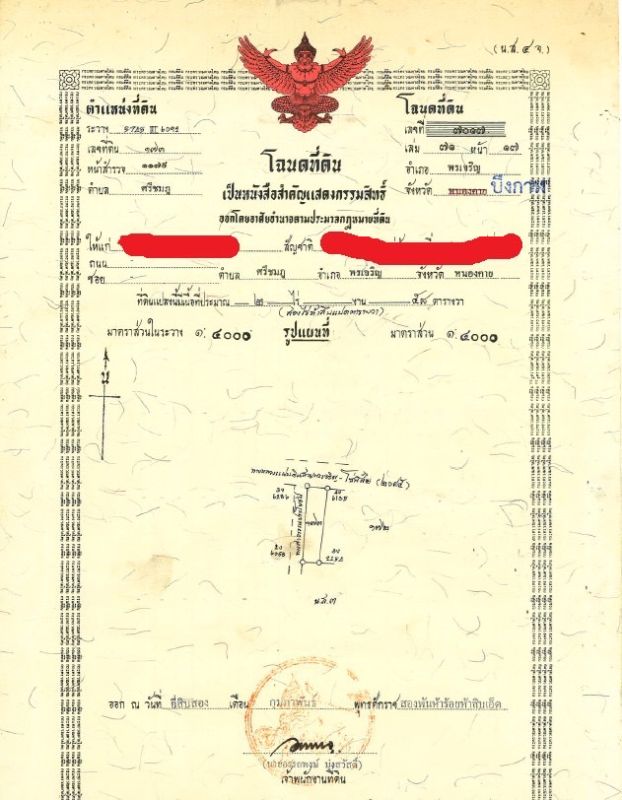 (น.ส. ๔ จ.)
ตำแหน่งที่ดิน
ระวาง
เลขที่ดิน ๑๗๓
หน้าสำรวจ ๑๑๗๙
ตำบล ศรีชมภู
โฉนดที่ดิน
เลขที่ ๗๐๑๗
เล่ม ๗๑ หน้า ๑๗
อำเภอ พรเจริญ
จังหวัด หนองคาย บึงกาฬ
โฉนดที่ดิน
เป็นหนังสือสำคัญแสดงกรรมสิทธิ์
ออกโดยอาศัยอำนาจตามประมวลกฎหมายที่ดิน
ให้แก่ สัญชาติ
ถนน
ซอย ตำบล ศรีชมภู อำเภอ พรเจริญ จังหวัด หนองคาย
ที่ดินแปลงนี้มีเนื้อที่ประมาณ ๒ ไร่ งาน ๕๘ ตารางวา
(สองไร่ห้าสิบแปดตารางวา)
มาตราส่วนในระวาง ๑:๔๐๐๐ รูปแผนที่ มาตราส่วน ๑:๔๐๐๐
น
๑๗๒
น.ส.๓
ออก ณ วันที่ ยี่สิบสอง เดือน กุมภาพันธ์ พุทธศักราช สองพันห้าร้อยห้าสิบเอ็ด
เจ้าพนักงานที่ดิน